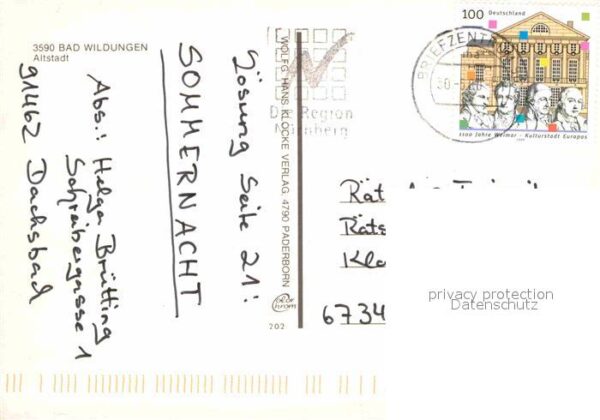 3590 BAD WILDUNGEN
Altstadt
Abs.: Helga Brütting
Schreibergasse 1
91462 Dachsbad
Lösung Seite 21:
SOMMERNACHT
WOLFG. HANS KLOCKE VERLAG, 4790 PADERBORN
202
Die Region
Nürnberg
BRIEFZENT
30
100 Deutschland
1100 Jahre Weimar - Kulturstadt Europas
Rät
Räts
Kla
6734
privacy protection
Datenschutz